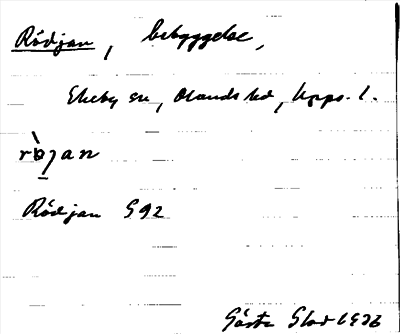 Rödjan, bebyggelse,
Ekeby sn, Olands hd, Upps. l.
rò̱jan
Rödjan S 92
Gösta